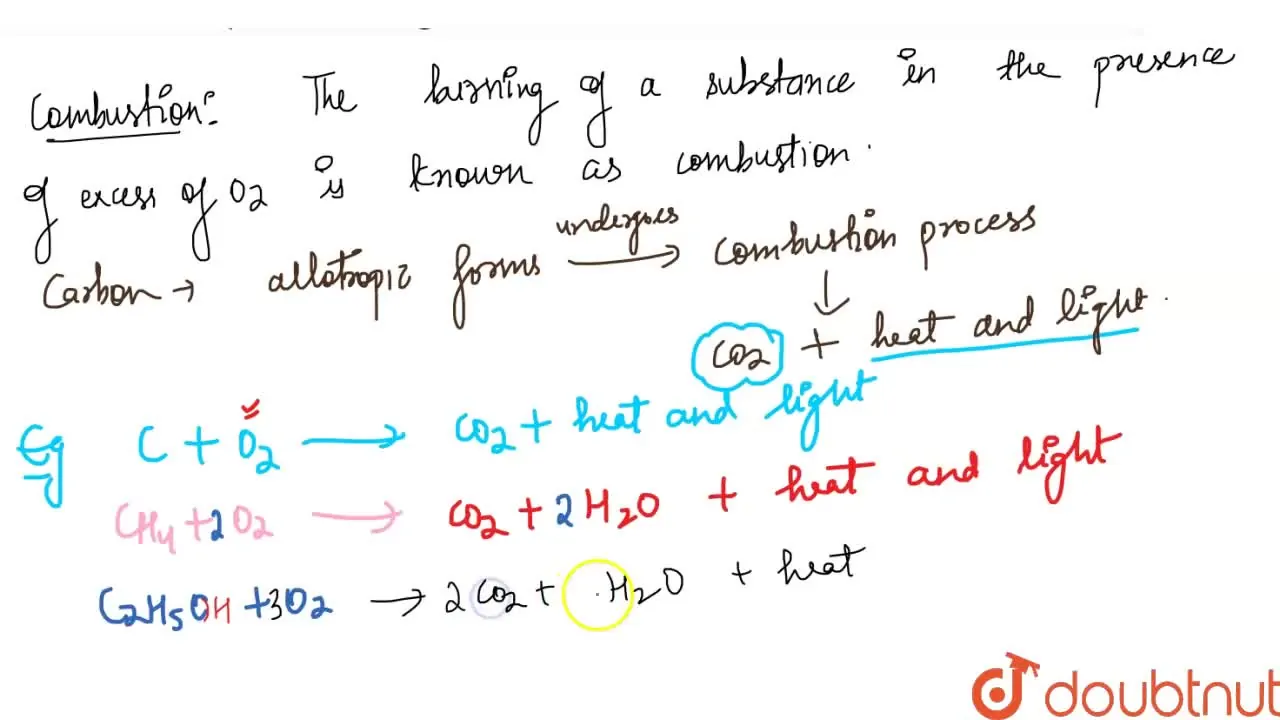 Combustion: The burning of a substance in the presence
of excess of O2 is known as combustion.
Carbon → allotropic forms undergoes → combustion process
↓
CO2 + heat and light.
Eg C + O2 → CO2 + heat and light
CH4 + 2O2 → CO2 + 2H2O + heat and light
C2H5OH + 3O2 → 2CO2 + H2O + heat
doubtnut